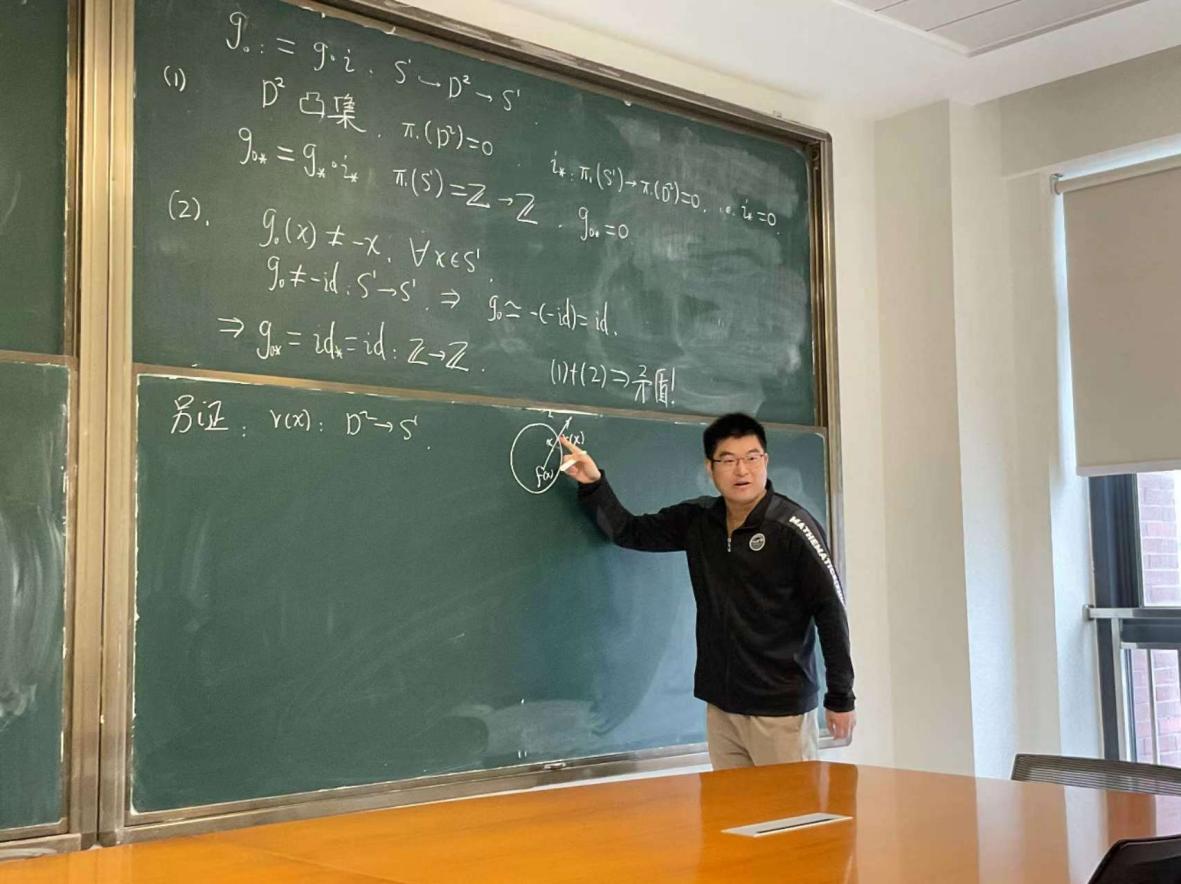 g₀ := g∘i . S¹→D²→S¹.
(1) D² 凸集. π₁(D²)=0.
g₀* = g*∘i* π₁(S¹)=ℤ→ℤ. i*: π₁(S¹)→π₁(D²)=0, ∴ i*=0.
g₀*=0
(2). g₀(x) ≠ -x. ∀x∈S¹.
g₀≠-id: S¹→S¹. ⇒ g₀≃-(-id)=id.
⇒ g₀* = id* = id: ℤ→ℤ.
(1)+(2)⇒矛盾!
另证: r(x): D²→S¹.
x r(x)
f(x)
MATHEMATIC